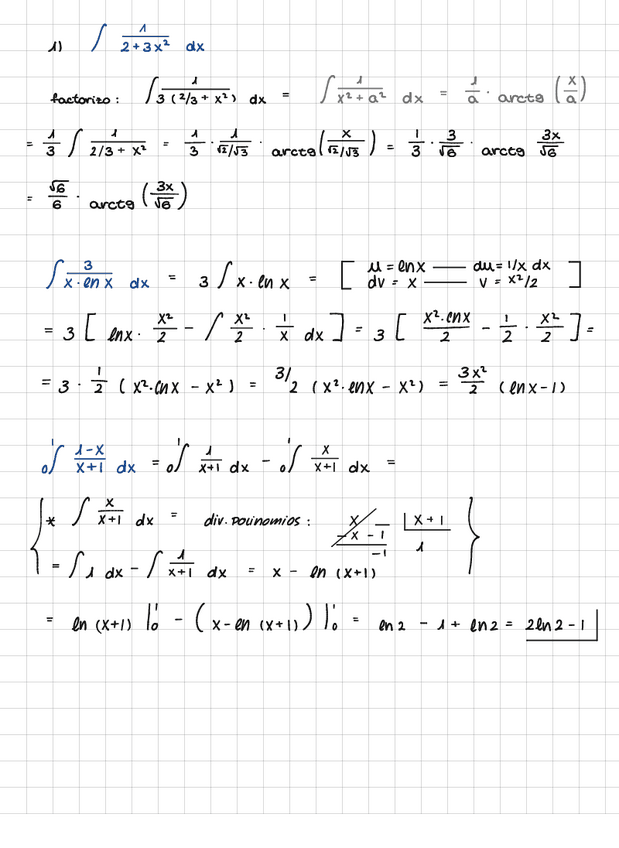 1) ∫ 1/(2+3x²) dx
factorizo: ∫ 1/(3(2/3 + x²)) dx = ∫ 1/(x² + a²) dx = 1/a · arctg (x/a)
= 1/3 ∫ 1/(2/3 + x²) = 1/3 · 1/(√2/√3) · arctg (x/(√2/√3)) = 1/3 · 3/√6 · arctg 3x/√6
= √6/6 · arctg (3x/√6)
∫ 3/(x·ln x) dx = 3 ∫ x·ln x = [ u = ln x — du = 1/x dx
dv = x — v = x²/2 ]
= 3 [ ln x · x²/2 − ∫ x²/2 · 1/x dx ] = 3 [ x²·ln x/2 − 1/2 · x²/2 ] =
= 3 · 1/2 (x²·ln x − x²) = 3/2 (x²·ln x − x²) = 3x²/2 (ln x − 1)
₀∫¹ (1−x)/(x+1) dx = ₀∫¹ 1/(x+1) dx − ₀∫¹ x/(x+1) dx =
{ * ∫ x/(x+1) dx = div. polinomios: x | x+1
−x − 1 1
−1
= ∫ 1 dx − ∫ 1/(x+1) dx = x − ln (x+1) }
= ln (x+1) |₀¹ − (x − ln (x+1)) |₀¹ = ln 2 − 1 + ln 2 = 2 ln 2 − 1